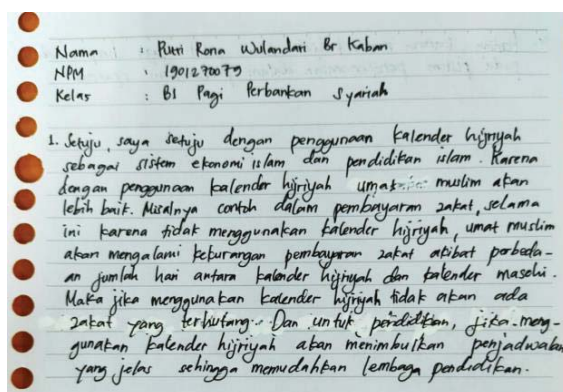 Nama : Putri Rona Wulandari Br Kaban
NPM : 1901270079
Kelas : B1 Pagi Perbankan Syariah
1. Setuju, saya setuju dengan penggunaan kalender hijriyah
sebagai sistem ekonomi islam dan pendidikan islam. Karena
dengan penggunaan kalender hijriyah umat muslim akan
lebih baik. Misalnya contoh dalam pembayaran zakat, selama
ini karena tidak menggunakan kalender hijriyah, umat muslim
akan mengalami kekurangan pembayaran zakat akibat perbeda-
an jumlah hari antara kalender hijriyah dan kalender masehi.
Maka jika menggunakan kalender hijriyah tidak akan ada
zakat yang terhutang. Dan untuk pendidikan, jika meng-
gunakan kalender hijriyah akan menimbulkan penjadwalan
yang jelas sehingga memudahkan lembaga pendidikan.